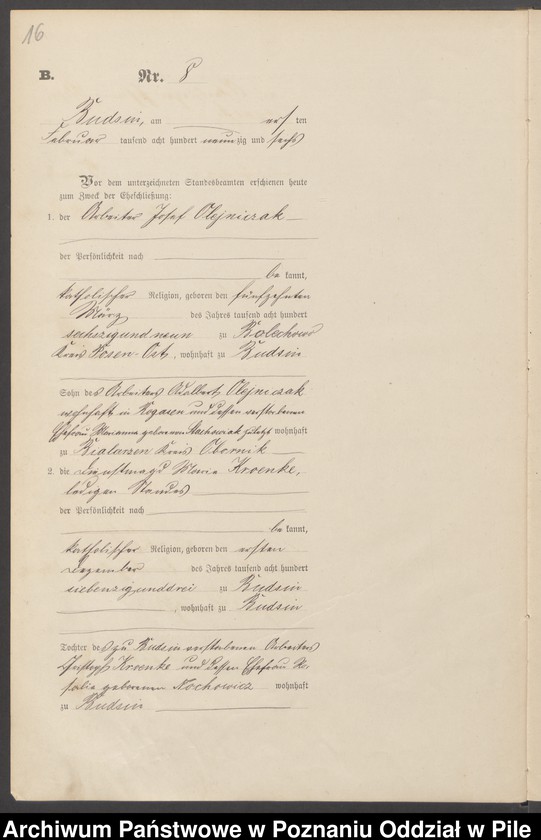 16
B. Nr. 8
Budsin, am ersten
Februar tausend acht hundert neunzig und sechs
Vor dem unterzeichneten Standesbeamten erschienen heute
zum Zweck der Eheschließung:
1. der Arbeiter Josef Olejniczak
der Persönlichkeit nach
be kannt,
katholischer Religion, geboren den fünfzehnten
März des Jahres tausend acht hundert
sechszigundneun zu
Kreis Posen-Ost, wohnhaft zu Budsin
Sohn des Arbeiters Adalbert Olejniczak
wohnhaft in Rogasen und dessen verstorbenen
Ehefrau Marianna geborenen Stachowiak zuletzt wohnhaft
zu Kreis Obornik
2. die Dienstmagd Maria Kroenke,
ledigen Standes
der Persönlichkeit nach
be kannt,
katholischer Religion, geboren den ersten
Dezember des Jahres tausend acht hundert
siebenzigunddrei zu Budsin
, wohnhaft zu Budsin
Tochter des zu Budsin verstorbenen Arbeiters
Kroenke und dessen Ehefrau Ro-
salie geborenen Nochowicz wohnhaft
zu Budsin
Archiwum Państwowe w Poznaniu Oddział w Pile